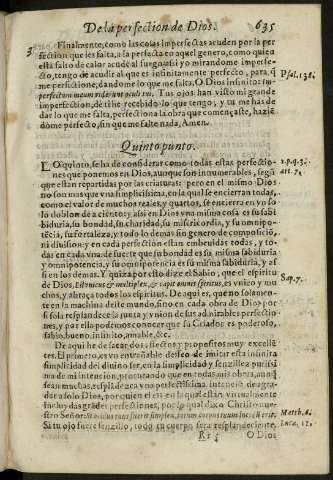 De la perfection de Dios. 635
3 Finalmente, como las cosas imperfectas acuden por la per
fection que les falta, a la perfecta en aquel genero, como quien
está falto de calor acude al fuego, assi yo mirandome imperfe-
cto, tengo de acudir al que es infinitamente perfecto, para q̃
me perfectione, dandome lo que me falta. O Dios infinito im-
Psal. 138.
perfectum meum viderunt oculi tui. Tus ojos han visto mi grande
imperfection, de ti he recebido lo que tengo, y tu me has de
dar lo que me falta, perfectiona la obra que començaste, hazié
dome perfecto, sin que me falte nada, Amen.
Quinto punto.
LO quinto, se ha de considerar como todas estas perfectio-
1. p. q. 3.
nes que ponemos en Dios, aunque son innumerables, segũ
art. 7.
que estan repartidas por las criaturas: pero en el mismo Dios
no son mas que vna simplicissima, en la qual se encierran todas,
como el valor de muchos reales, y quartos, se encierra en vn so
lo doblon de a ciento; assi en Dios vna misma cosa es su sabi
biduria, su bondad, su charidad, su misericordia, y su omnipo-
tēcia, su fortaleza, y todo lo demas sin genero de composició,
ni diuision: y en cada perfection estan embeuidas todas, y to-
das en cada vna, de suerte que su bondad es su misma sabiduria
y omnipotencia, y su omnipotencia es su misma sabiduria, y as
si en los demas. Y quiza por esto dize el Sabio, que el espiritu
de Dios,
Sap. 7.
es vnico y mu
chos, y abraça todos los espiritus. De aqui es, que no solamen-
te en la machina deste mundo, sino en cada obra de Dios por
si sola resplandece la junta y vnion de sus admirables perfectio-
nes, y por ella podemos conocer que su Criador es poderoso,
sabio, bueno, infinito, amable, &c.
De aqui he de sacar dos afectos y propositos muy excelē-
tes. El primero, es vn entrañable desseo de imitar esta infinita
simplicidad del diuino ser, en la simplicidad y senzillez purissi
ma de mi intencion, procurando que en todas mis obras, aunq̃
sean muchas, resplãdezca vna perfectissima intenció de agra-
dar a solo Dios, porque en el qual estan virtualmente
incluydas grãdes perfectiones, por lo qual dixo Christo nue-
stro Señor: Si oculus tuus fuerit simplex, totum corpus tuum lucidũ erit.
Matth. 6.
Luca. 11.
Si tu ojo fuere senzillo, todo tu cuerpo sera resplandeciente.
Rr 5 O Dios